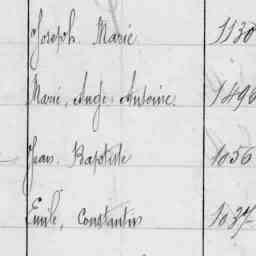 Joseph Marie 1130
Marie, Ange, Antoine. 1496
Jean Baptiste 1056
Emile, Constantin 1037